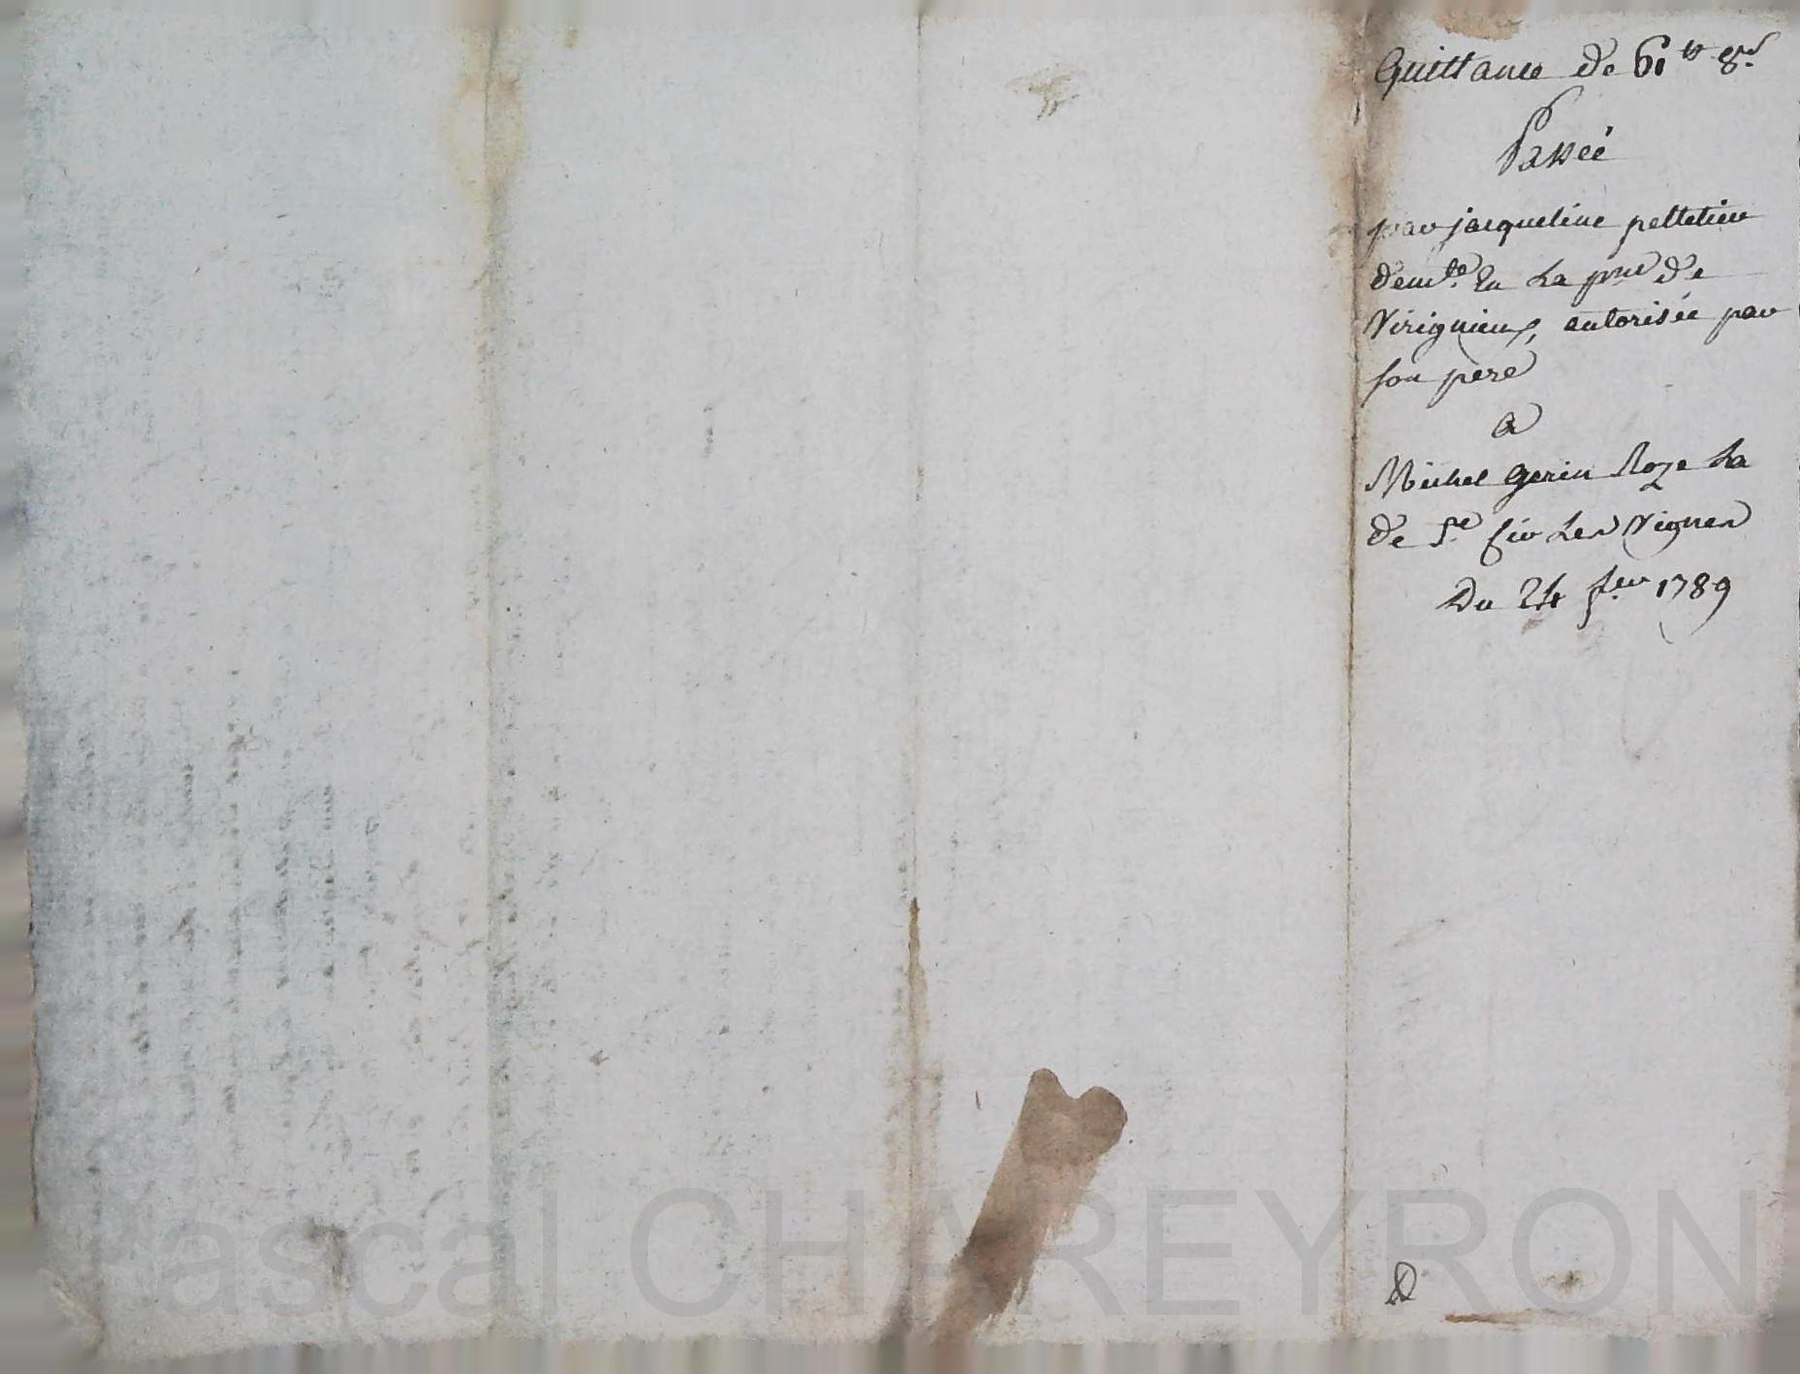 Quittance de 61 tt 8 s.
Passée
par jacqueline pelletier
demte. en La psse de
Virignieux, autorisée par
son pere
a
Michel Gerin Roze La
de St. Cir Les Vignes
Du 24 fer. 1789
Pascal CHAREYRON